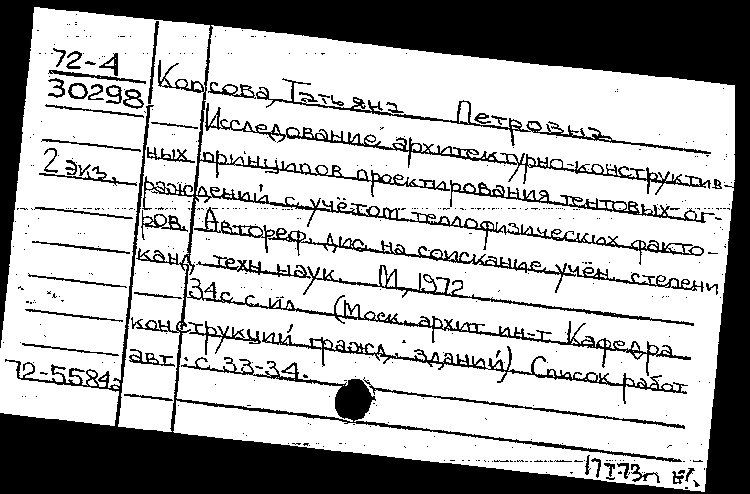 72-4
30298
Копсова, Татьяна Петровна
Исследование архитектурно-конструктив-
2 экз.
ных принципов проектирования тентовых ог-
раждений с учётом теплофизических факто-
ров. Автореф. дис. на соискание учён. степени
канд. техн. наук. М., 1972.
34с. с ил. (Моск. архит. ин-т. Кафедра
конструкций гражд. зданий). Список работ
авт.: с. 33-34.
72-5584а
17 I 73г